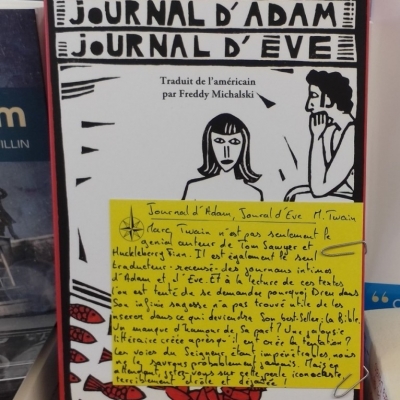 JOURNAL D'ADAM
JOURNAL D'ÈVE
Traduit de l'américain
par Freddy Michalski
m
VILLIN
Journal d'Adam, Journal d'Eve M. Twain
Marc Twain n'est pas seulement le
génial auteur de Tom Sawyer et
Huckleberry Finn. Il est également le seul
traducteur recensé des journaux intimes
d'Adam et d'Eve. Et à la lecture de ces textes
l'on est tenté de se demander pourquoi Dieu dans
Son infinie sagesse n'a pas trouvé utile de les
insérer dans ce qui deviendra Son best-seller, la Bible.
Un manque d'humour de Sa part? Une jalousie
littéraire créée après qu'il eut créé la tentation?
Les voies du Seigneur étant impénétrables, nous
ne le saurons probablement jamais. Mais en
attendant, jetez-vous sur cette perle iconoclaste
terriblement drôle et déjantée!